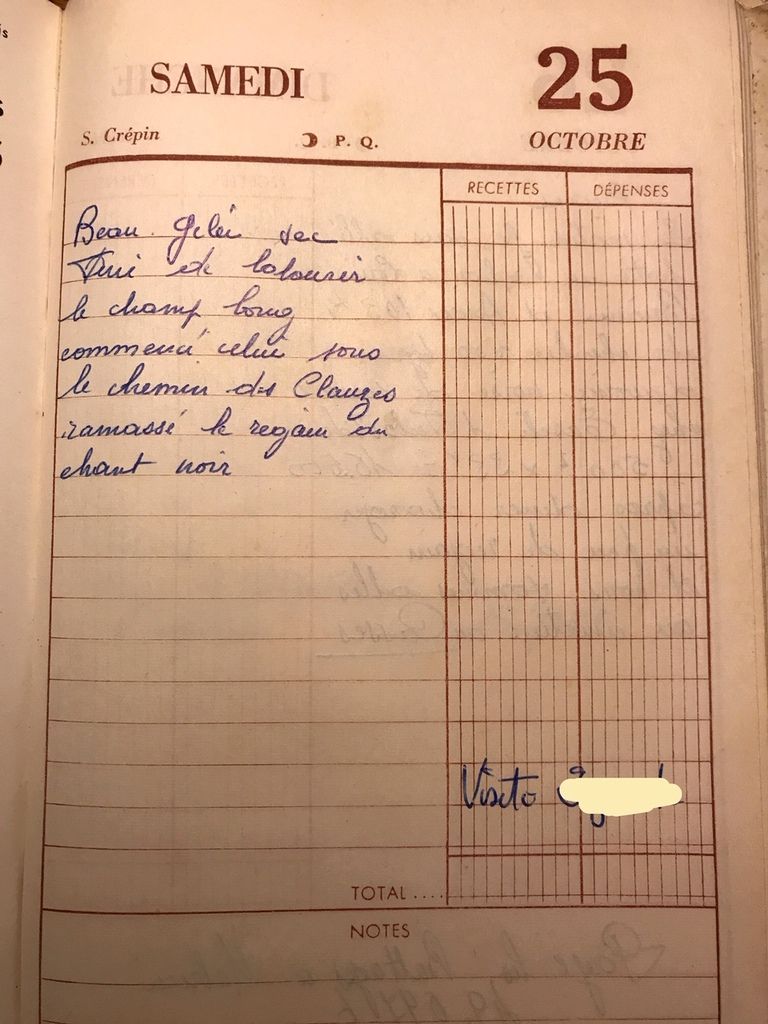 SAMEDI 25
S. Crépin P. Q. OCTOBRE
RECETTES DÉPENSES
Beau gelée sec
Fini de labourer
le champ long
commencé celui sous
le chemin des Clauzes
ramassé le regain du
chant noir
Visite
TOTAL ....
NOTES